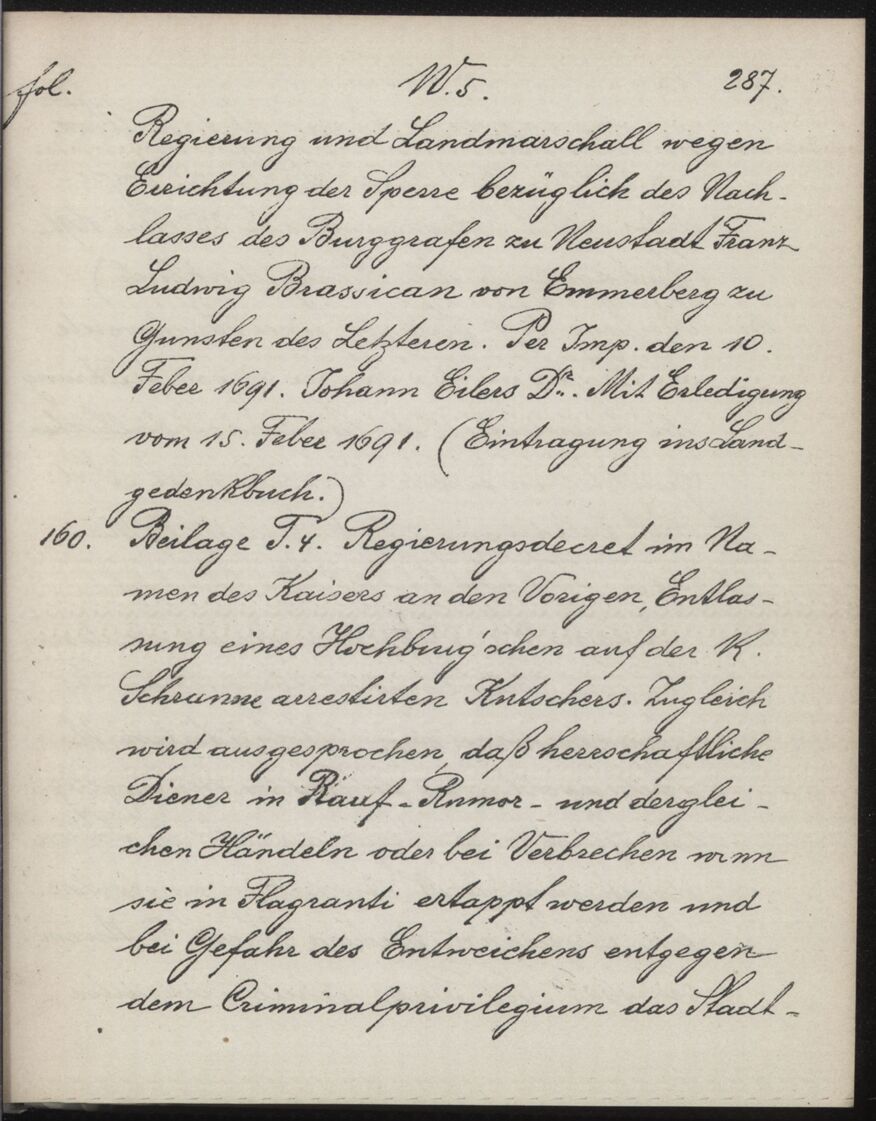 fol. W. 5. 287.
Regierung und Landmarschall wegen
Errichtung der Sperre bezüglich des Nach-
lasses des Burggrafen zu Neustadt Franz
Ludwig Brassican von Emmerberg zu
Gunsten des Letzteren. Per Imp. den 10.
Feber 1691. Johann Eilers Dr. Mit Erledigung
vom 15. Feber 1691. (Eintragung ins Land-
gedenkbuch.)
160. Beilage T. 4. Regierungsdecret im Na-
men des Kaisers an den Vorigen, Entlas-
sung eines Hochburg'schen auf der K.
Schranne arrestirten Kutschers. Zugleich
wird ausgesprochen, daß herrschaftliche
Diener in Rauf- Rumor- und derglei-
chen Händeln oder bei Verbrechen wenn
sie in Flagranti ertappt werden und
bei Gefahr des Entweichens entgegen
dem Criminalprivilegium das Stadt-